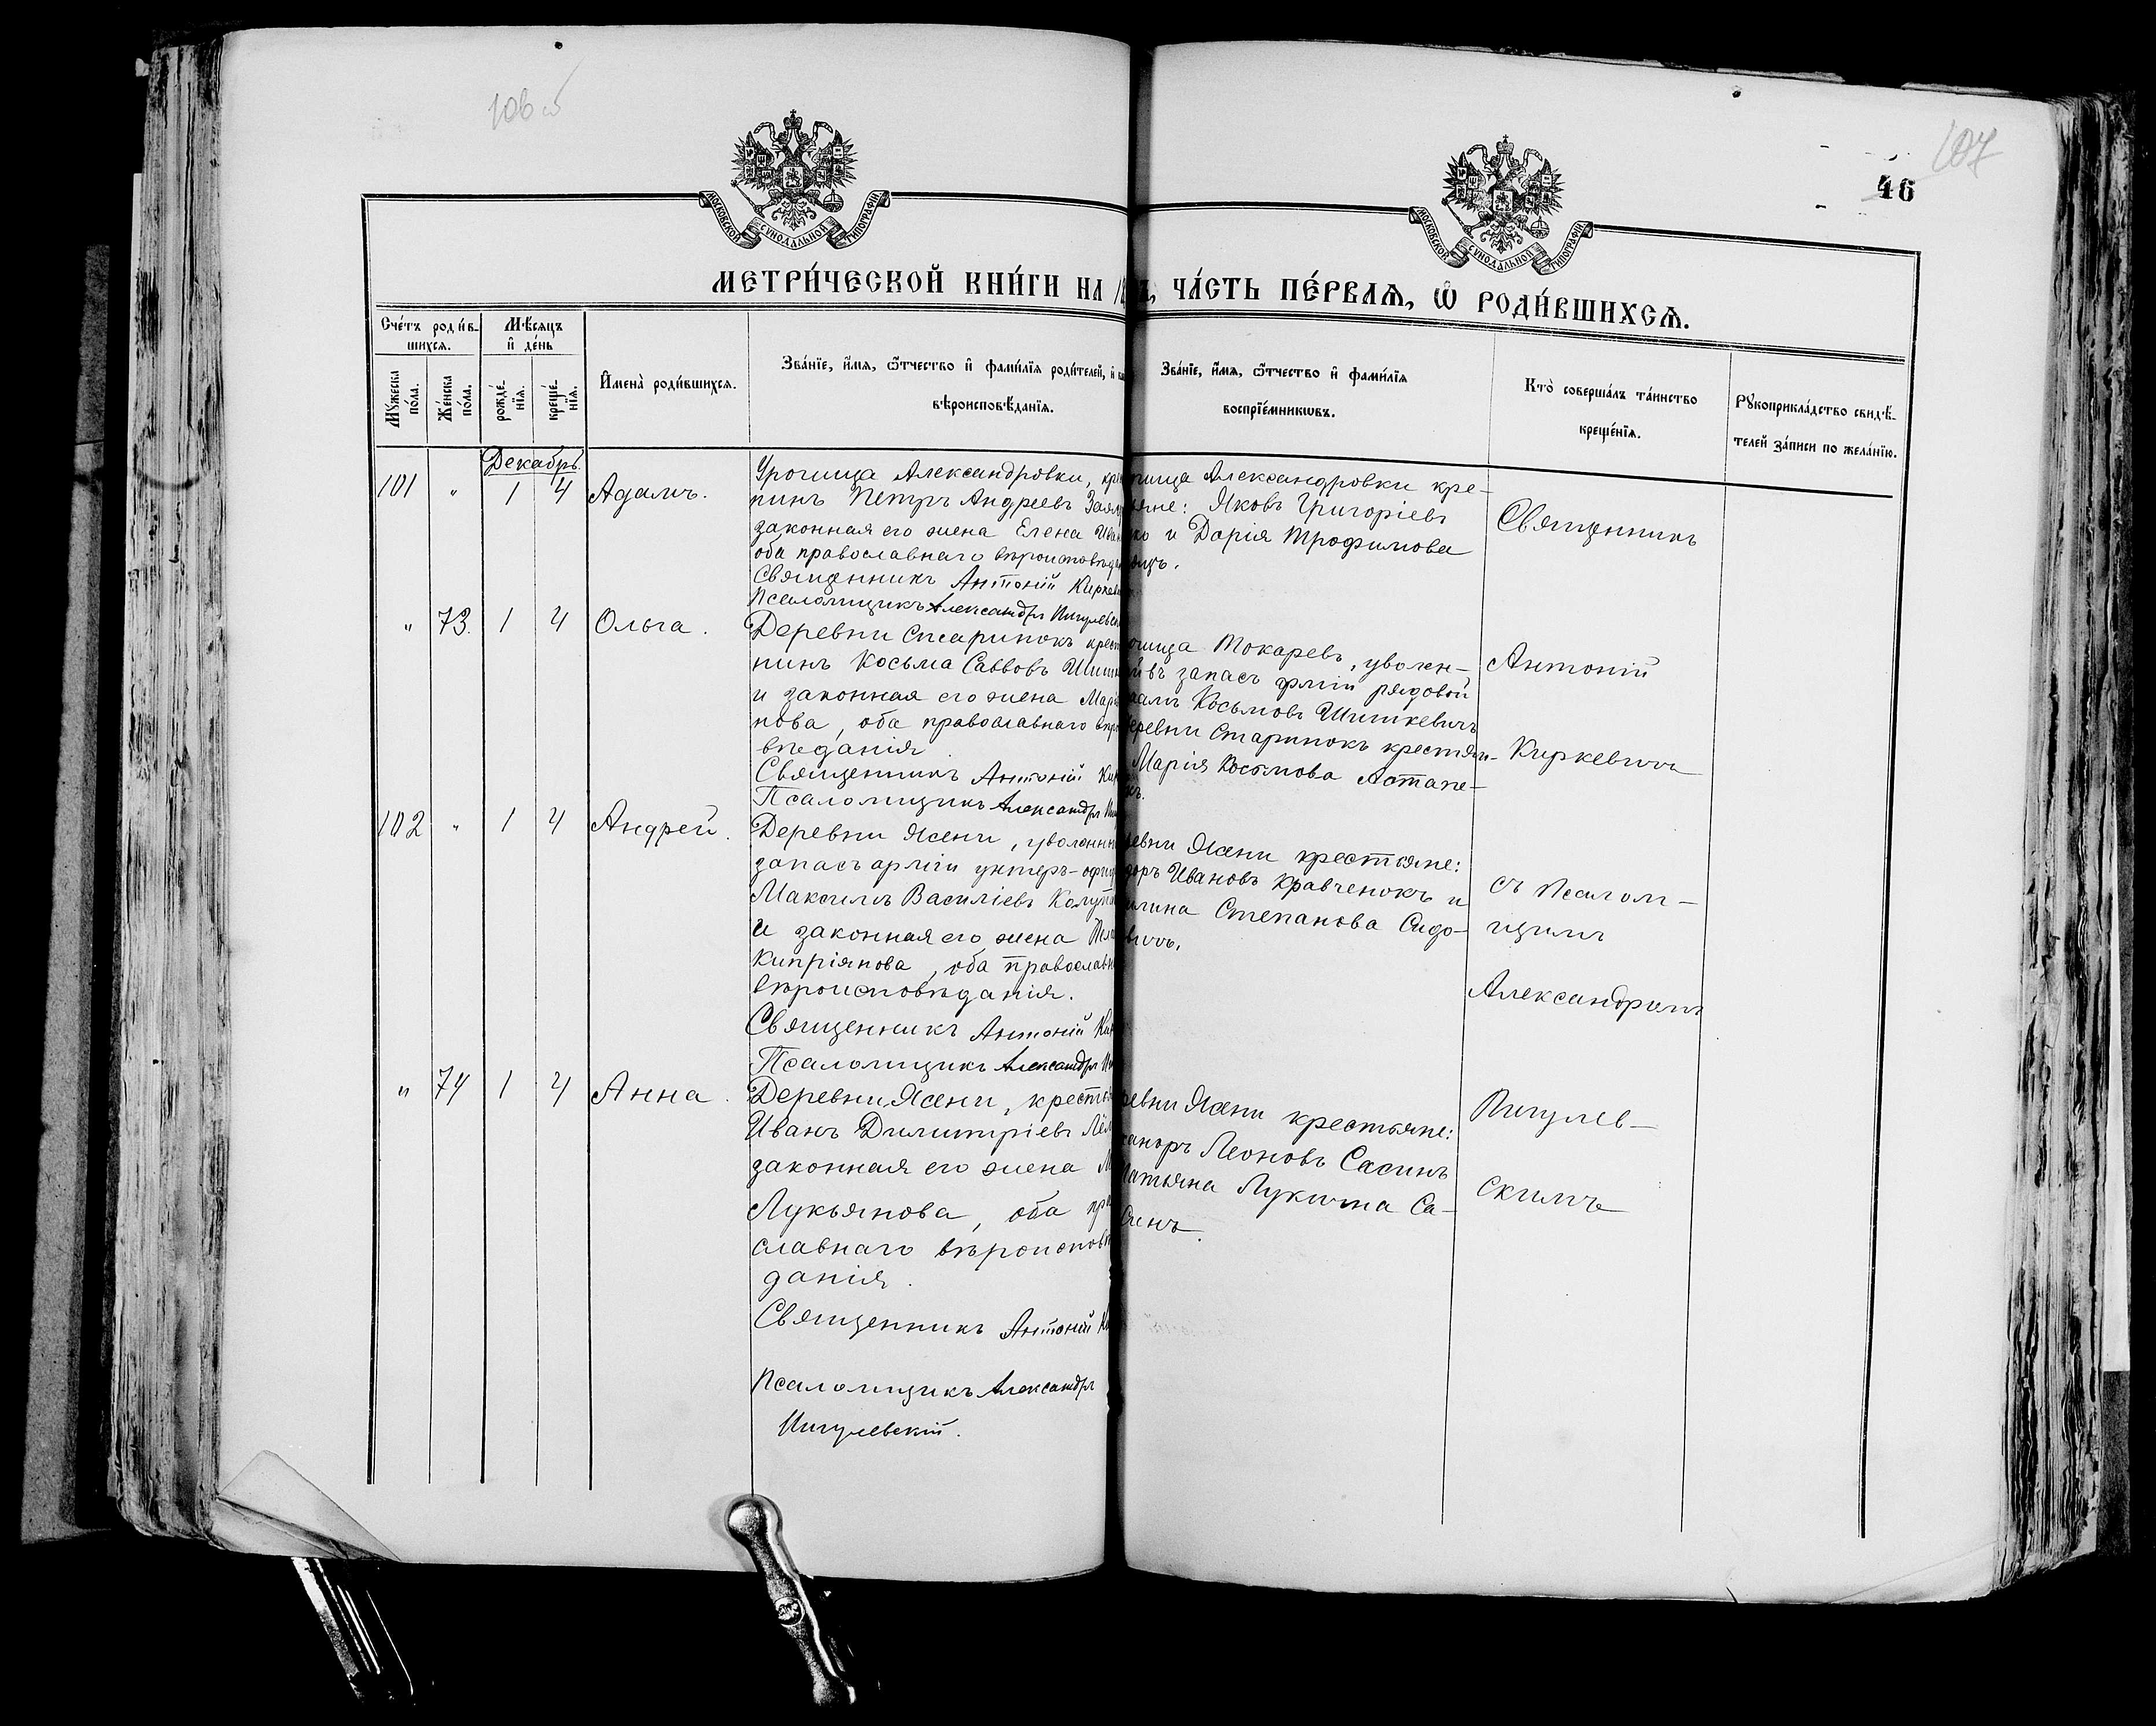 106 об
107
46
МОСКОВСКОЙ СѴНОДАЛЬНОЙ ТИПОГРАФІИ.
МОСКОВСКОЙ СѴНОДАЛЬНОЙ ТИПОГРАФІИ.
МЕТРИ́ЧЕСКОЙ КНИ́ГИ НА 18
, ЧА́СТЬ ПЕ́РВАѦ, Ѡ РОДИ́ВШИХСѦ.
Сче́тъ роди́в-
шихсѧ.
Мꙋ́жеска
по́ла.
Же́нска
по́ла.
Мѣ́сѧцъ
и҆ де́нь
рожде́-
нїѧ.
креще́-
нїѧ.
И҆мена̀ роди́вшихсѧ.
Зва́нїе, и҆́мѧ, ѻ҆́тчество и҆ фами́лїѧ роди́телей, и҆
вѣроисповѣ́данїѧ.
Зва́нїе, и҆́мѧ, ѻ҆́тчество и҆ фами́лїѧ
воспрїе́мникѡвъ.
Кто̀ соверша́лъ та́инство
креще́нїѧ.
Рꙋкоприкла́дство свидѣ́-
телей за́писи по жела́нїю.
Декабрь.
101 " 1 4 Адамъ.
Урочища Александровки, кре
нинъ Петръ Андреевъ Заям
законная его жена Елена Иван
оба православнаго вѣроисповѣда
Священникъ Антоній Киркеви
Псаломщикъ Александръ Пигулевск
рочища Александровки кре-
тьяне: Яковъ Григоріевъ
ко и Дарія Трофимова
" 73. 1 4 Ольга.
Деревни Старинокъ крест
нинъ Косьма Саввовъ Шишк
и законная его жена Марі
нова, оба православнаго вѣро
вѣданія
Священникъ Антоній Кир
Псаломщикъ Александръ Пи
очища Токаревъ, уволен-
й въ запасъ арміи рядовой
Косьмовъ Шишкевичъ
деревни Старинокъ крестьян-
Марія Косьмова Астапе-
102 " 1 4 Андрей.
Деревни Ясени, уволенны
запасъ арміи унтеръ-офиц
Максимъ Василіевъ Колуп
и законная его жена
Кипріянова, оба православн
вѣроисповѣданія.
Священникъ Антоній Кир
Псаломщикъ Александръ Пи
ревни Ясени крестьяне:
доръ Ивановъ Кравченокъ и
Степанова Сидо-
вичъ.
" 74 1 4 Анна.
Деревни Ясени, крестья
Иванъ Димитріевъ
законная его жена
Лукьянова, оба пра
славнаго вѣроисповѣ
данія.
Священникъ Антоній Ки
Псаломщикъ Александръ
Пигулевскій.
ревни Ясени крестьяне:
Леоновъ Сасинъ
Татьяна Лукича Са-
синъ.
Священникъ
Антоній
Киркевичъ
съ псалом-
щикомъ
Александромъ
Пигулев-
скимъ